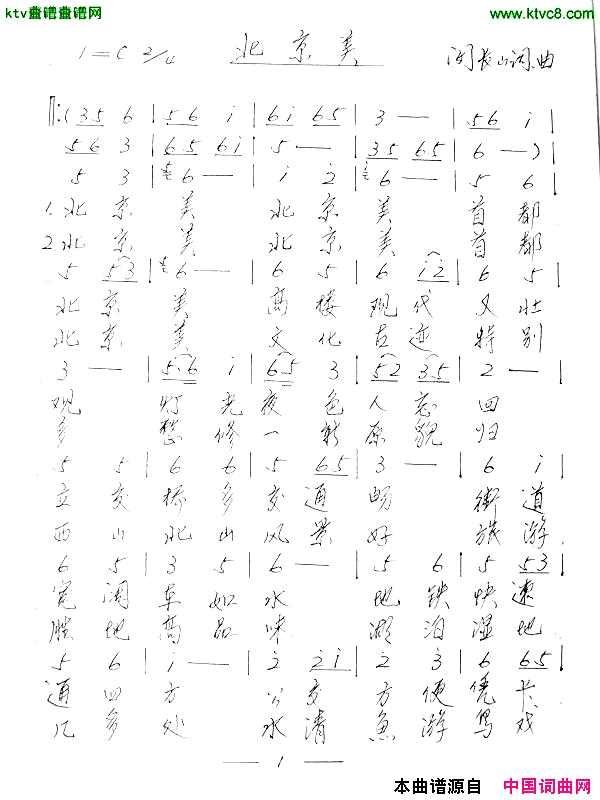 ktv曲谱曲谱网 www.ktvc8.com
1=C 2/4 北京美 闵长山词曲
‖:(35 6 | 56 i | 6i 65 | 3 — | 56 i |
56 3 | 65 6i | 5 — | 35 65 | 6 —)
5 3 | 6 — | i 2 | 6 — | 5 6 |
1. 北京 美 北京 美 首都
2. 北京 美 北京 美 首都
5 53 | 6 — | 6 5 | 6 i2 | 6 5 |
北京 美 高楼 现代 又壮
北京 美 文化 古迹 特别
3 — | 5·6 i | 65 3 | 52 35 | 2 — |
观 灯光 夜色 人忘 回
多 整修 一新 原貌 归
5 5 | 6 6 | 5 65 | 3 — | 6 i |
立交 桥多 交通 畅 街道
西山 北山 风景 好 旅游
6 5 | 3 5 | 6 — | 5 6 | 5 53 |
宽阔 车如 水 地铁 快速
胜地 高品 味 湖泊 湿地
5 6 | i — | 2 2i | 2 3 | 6 65 |
通四 方 公交 方便 凭卡
几多 处 水清 鱼游 鸟戏
— 1 —
本曲谱源自 中国词曲网